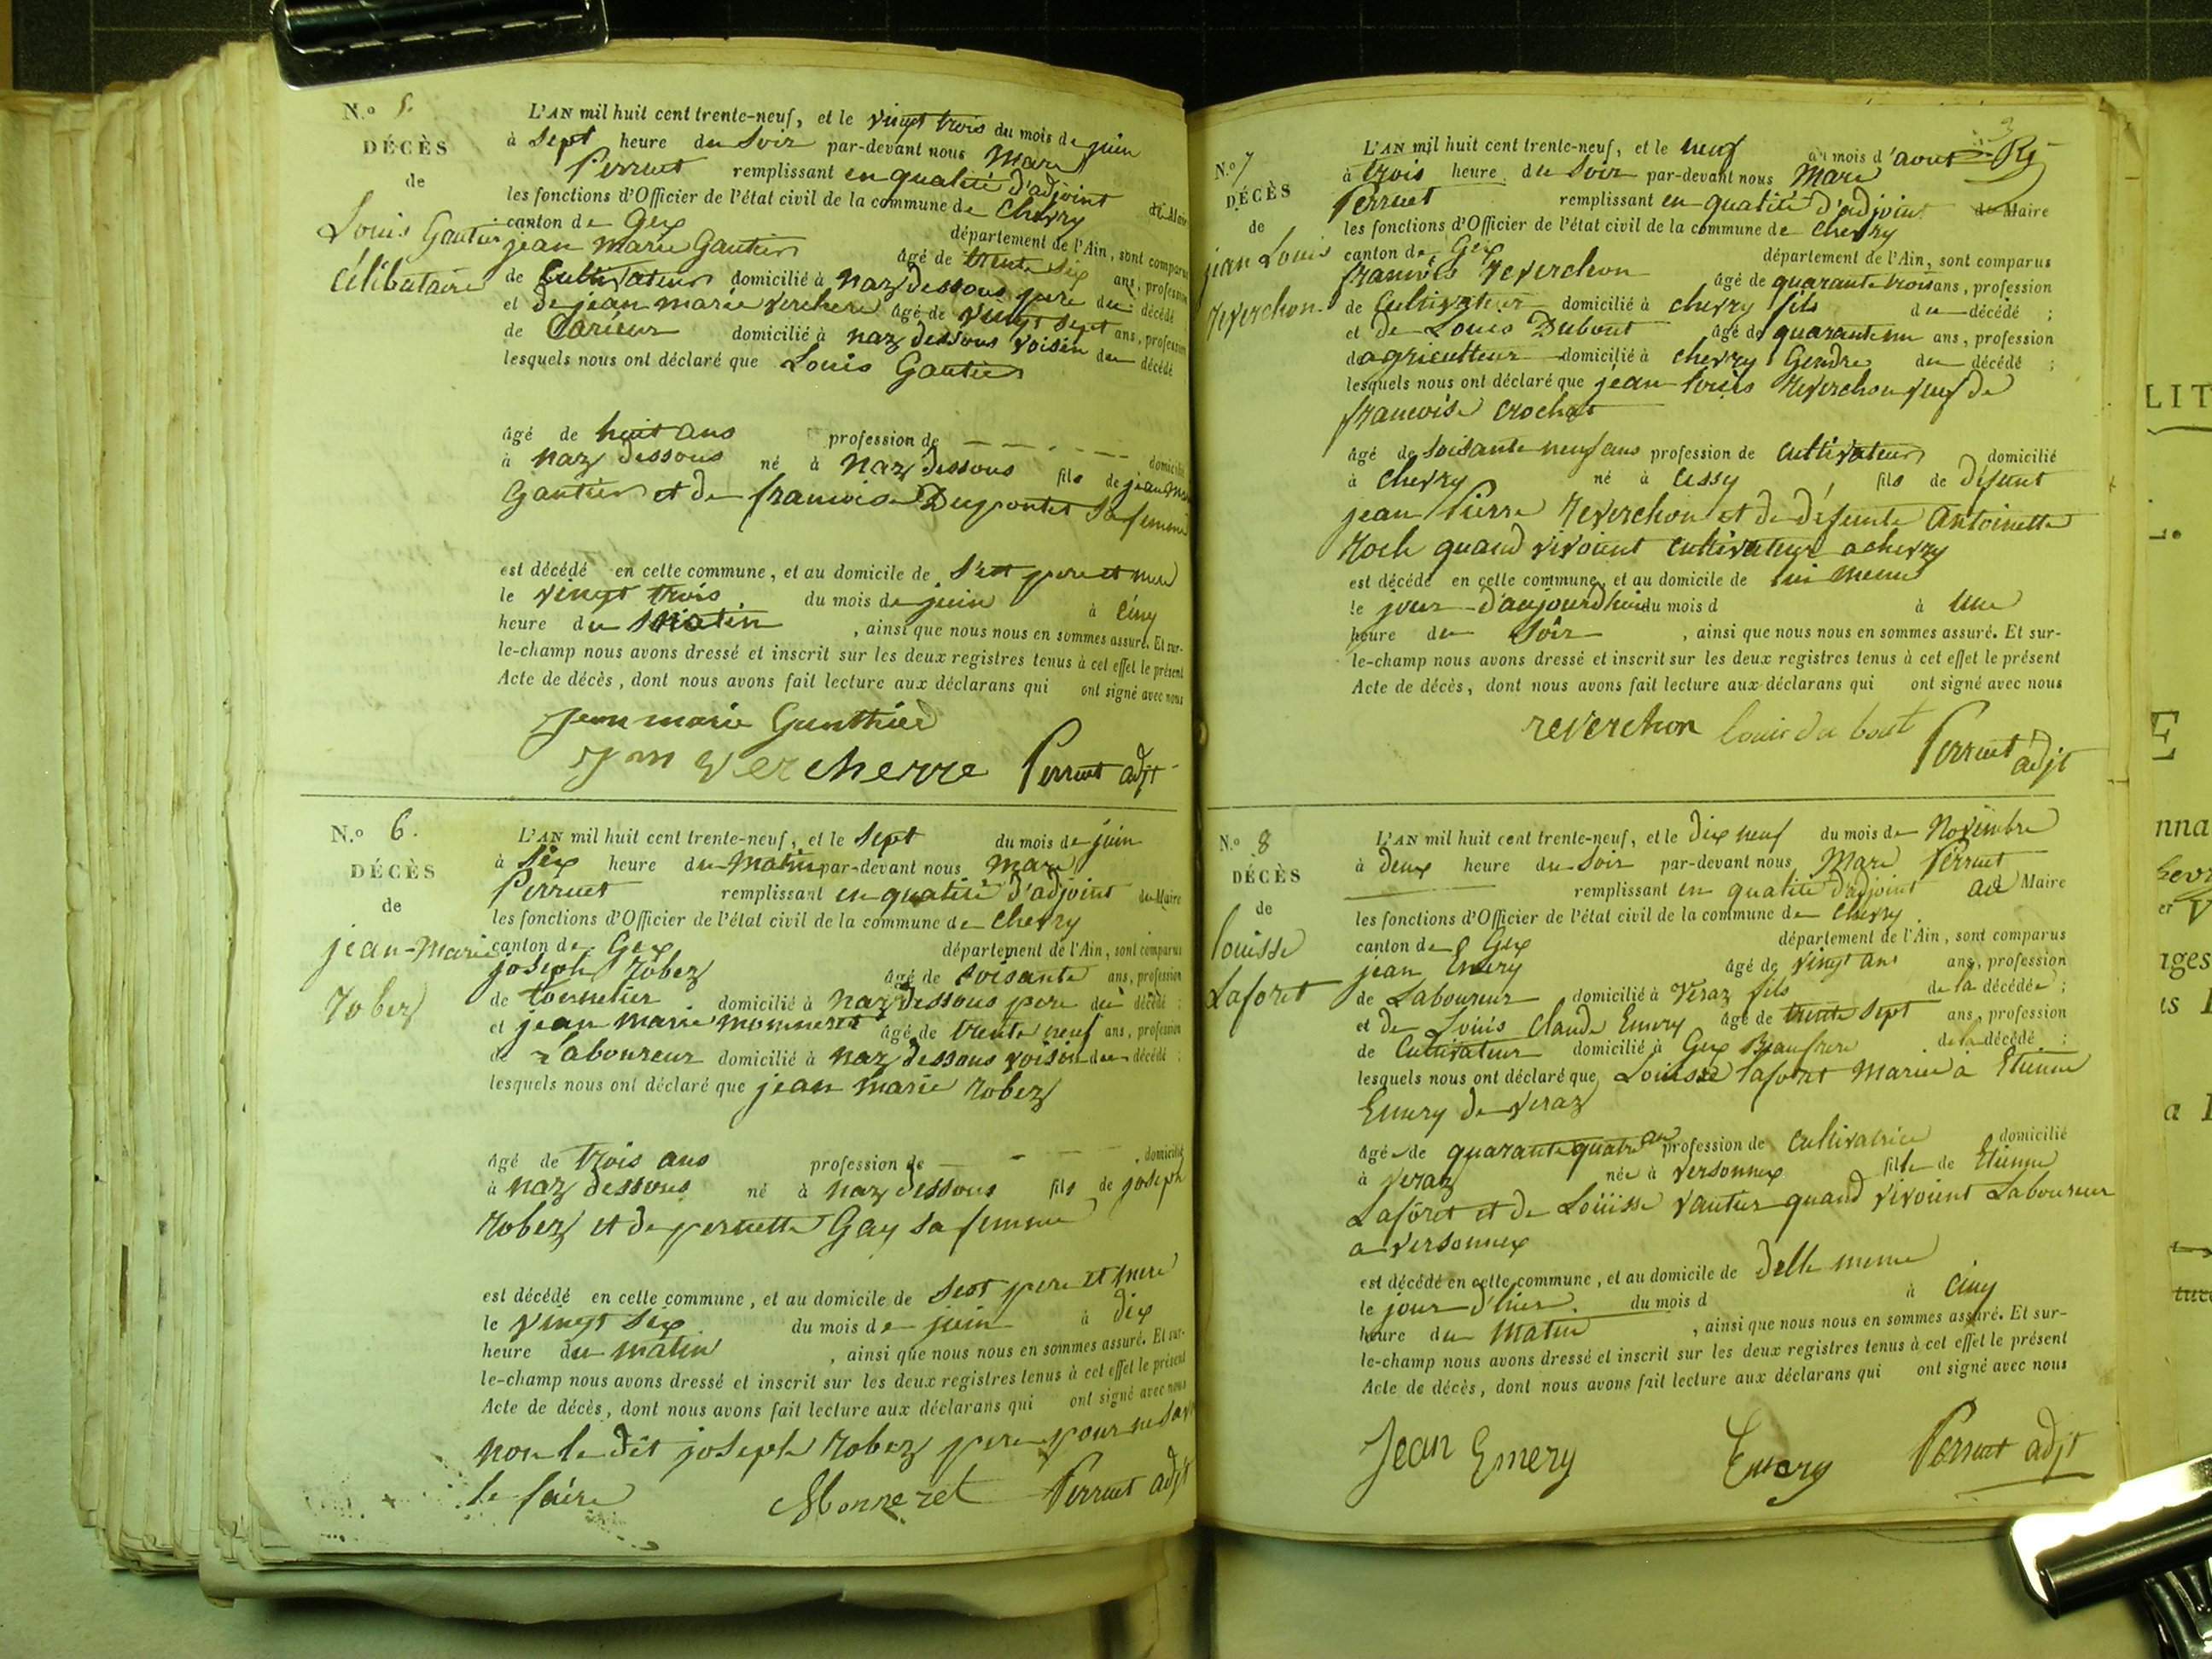 N.o 5.
DÉCÈS
de
Louis Gautier
célibataire
L'AN mil huit cent trente-neuf, et le vingt trois du mois de juin
à sept heure du soir par-devant nous Marc
Perruet remplissant en qualité d'adjoint du Maire
les fonctions d'Officier de l'état civil de la commune de chevry
canton de Gex département de l'Ain, sont comparus
jean marie Gautier âgé de trente six ans, profession
de Cultivateur domicilié à naz dessous pere du décédé
et de jean marie verchere âgé de vingt sept ans, profession
de Carieur domicilié à naz dessous voisin du décédé
lesquels nous ont déclaré que Louis Gautier
âgé de huit ans profession de domicilié
à naz dessous né à Naz dessous fils de jean Marie
Gautier et de francoise Dupontet sa femme
est décédé en cette commune, et au domicile de sest pere et mere
le vingt trois du mois de juin à cinq
heure du Matin , ainsi que nous nous en sommes assuré. Et sur-
le-champ nous avons dressé et inscrit sur les deux registres tenus à cet effet le présent
Acte de décès, dont nous avons fait lecture aux déclarans qui ont signé avec nous
Jean marie Gauthier
J m Vercherre Perruet adjt
N.o 6.
DÉCÈS
de
jean-Marie
Robez
L'AN mil huit cent trente-neuf, et le sept du mois de juin
à six heure du matin par-devant nous Marc
Perruet remplissant en qualité d'adjoint du Maire
les fonctions d'Officier de l'état civil de la commune de chevry
canton de Gex département de l'Ain, sont comparus
joseph Robez âgé de soisante ans, profession
de tonnelier domicilié à naz dessous pere du décédé ;
et jean marie monneret âgé de trente neuf ans, profession
de Laboureur domicilié à naz dessous voisin du décédé ;
lesquels nous ont déclaré que jean marie Robez
âgé de trois ans profession de , domicilié
à naz dessous né à naz dessous fils de joseph
Robez et de pernette Gay sa femme
est décédé en cette commune, et au domicile de sest pere et mere
le vingt six du mois de juin à dix
heure du matin , ainsi que nous nous en sommes assuré. Et sur-
le-champ nous avons dressé et inscrit sur les deux registres tenus à cet effet le présent
Acte de décès, dont nous avons fait lecture aux déclarans qui ont signé avec nous
non le dit joseph Robez pere pour ne savoir
le faire Monneret Perruet adjt
3
N.o 7
DÉCÈS
de
jean Louis
Reverchon
L'AN mil huit cent trente-neuf, et le neuf du mois d'aout
à trois heure du soir par-devant nous Marc
Perruet remplissant en qualité d'adjoint du Maire
les fonctions d'Officier de l'état civil de la commune de chevry
canton de Gex département de l'Ain, sont comparus
francois Reverchon âgé de quarante trois ans, profession
de Cultivateur domicilié à chevry fils du décédé ;
et de Louis Dubout âgé de quarante un ans, profession
de agriculteur domicilié à chevry Gendre du décédé ;
lesquels nous ont déclaré que jean louis Reverchon veuf de
francoise crochat
âgé de soisante neuf ans profession de Cultivateur domicilié
à chevry né à Cessy fils de défunt
jean Pierre Reverchon et de défunte Antoinette
Roch quand vivoient cultivateur a chevry
est décédé en cette commune, et au domicile de lui meme
le jour d'aujourdhui du mois d à une
heure du soir , ainsi que nous nous en sommes assuré. Et sur-
le-champ nous avons dressé et inscrit sur les deux registres tenus à cet effet le présent
Acte de décès, dont nous avons fait lecture aux déclarans qui ont signé avec nous
reverchon louis du bout Perruet
adjt
N.o 8
DÉCÈS
de
louisse
Laforet
L'AN mil huit cent trente-neuf, et le dix neuf du mois de Novembre
à deux heure du soir par-devant nous Marc Perruet
remplissant en qualité d'adjoint au Maire
les fonctions d'Officier de l'état civil de la commune de chevry
canton de Gex département de l'Ain, sont comparus
jean Emery âgé de vingt ans ans, profession
de Laboureur domicilié à Veraz fils de la décédée ;
et de Louis Claude Emery âgé de trente sept ans, profession
de Cultivateur domicilié à Gex Beaufrere de la décédé ;
lesquels nous ont déclaré que Louisse laforet Mariée à Etienne
Emery de veraz
âgée de quarante quatre an profession de cultivatrice domicilié
à veraz née à versonnex fille de Etienne
Laforet et de Louisse vautier quand vivoient Laboureur
a versonnex
est décédé en cette commune, et au domicile de delle meme
le jour d'hier du mois d à cinq
heure du matin , ainsi que nous nous en sommes assuré. Et sur-
le-champ nous avons dressé et inscrit sur les deux registres tenus à cet effet le présent
Acte de décès, dont nous avons fait lecture aux déclarans qui ont signé avec nous
Jean Emery Emery Perruet adjt
LIT
E
nna
ages
a